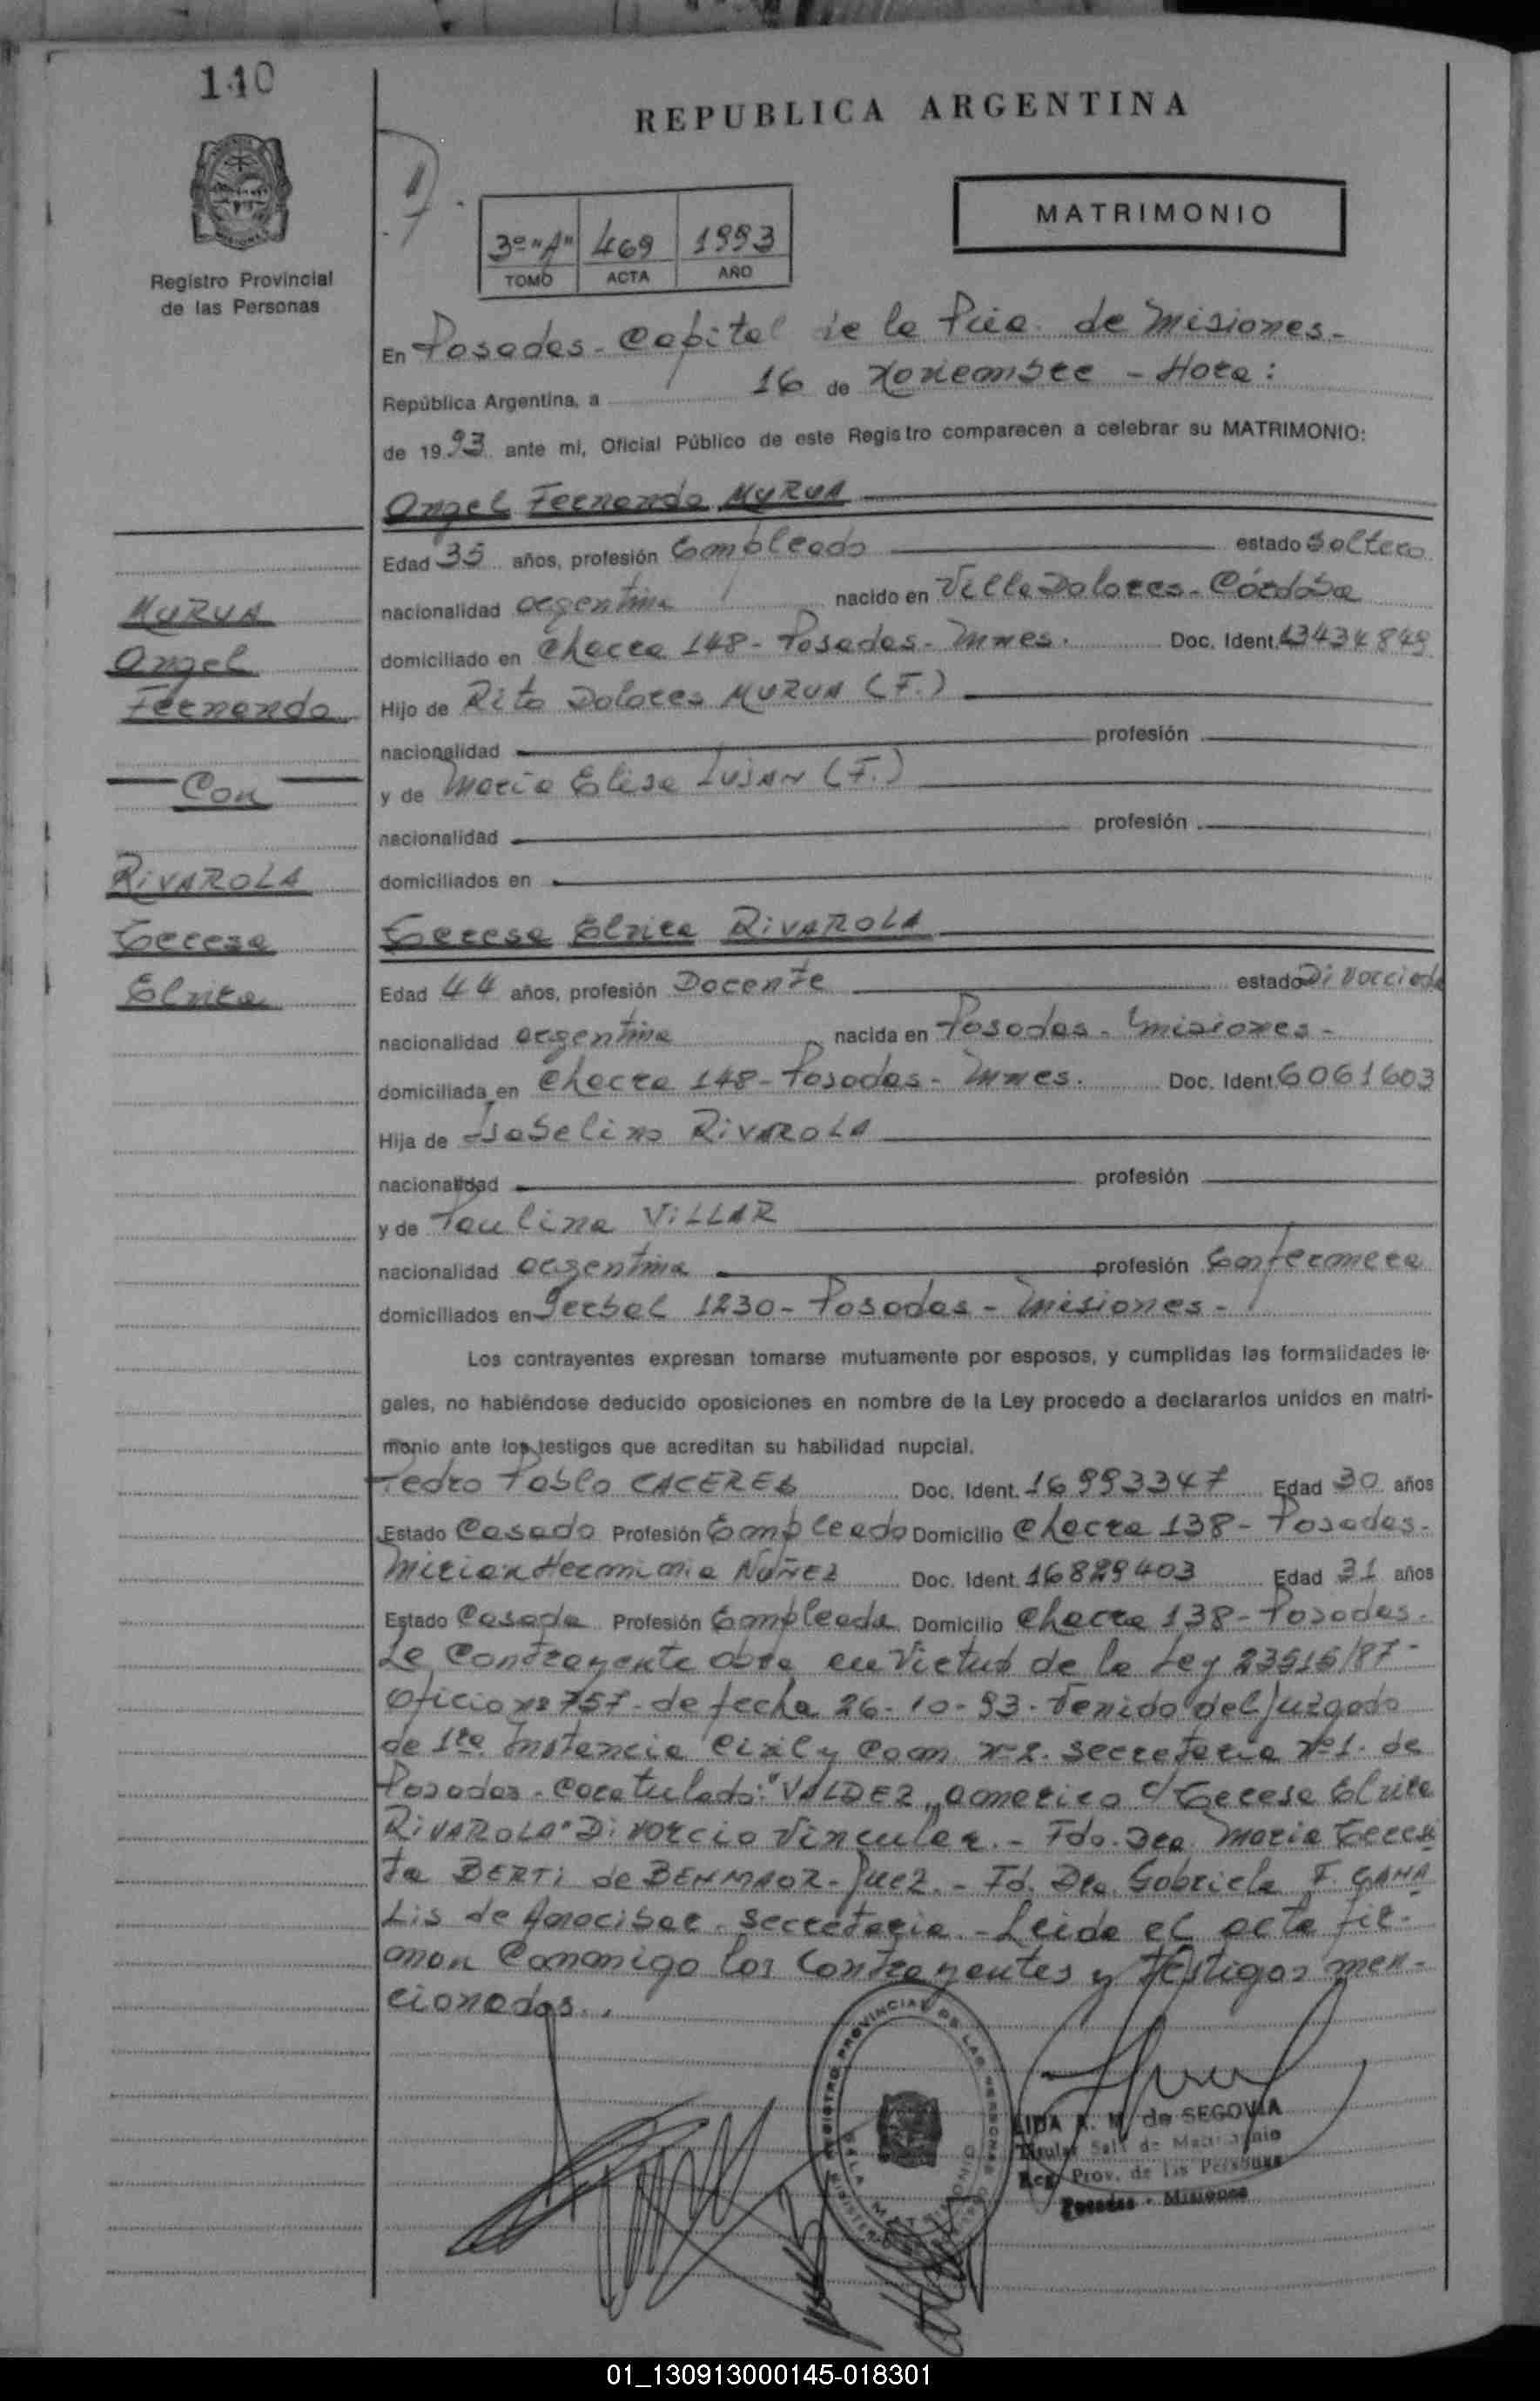 110
REPUBLICA ARGENTINA
MATRIMONIO
3º "A" 469 1993
TOMO ACTA AÑO
Registro Provincial
de las Personas
En Posadas - Capital de la Pcia. de Misiones -
República Argentina, a 16 de Noviembre - Hora:
de 1993 ante mi, Oficial Público de este Registro comparecen a celebrar su MATRIMONIO:
Angel Fernando MURUA
Edad 35 años, profesión Empleado estado Soltero
nacionalidad argentina nacido en Villa Dolores - Córdoba
domiciliado en Chacra 148 - Posadas - Mnes. Doc. Ident. 13434849
Hijo de Rito Dolores MURUA (F.)
nacionalidad profesión
y de María Elisa LUJAN (F.)
nacionalidad profesión
domiciliados en
MURUA
Angel
Fernando
Con
RIVAROLA
Teresa
Elvira
Teresa Elvira RIVAROLA
Edad 44 años, profesión Docente estado Divorciada
nacionalidad argentina nacida en Posadas - Misiones -
domiciliada en Chacra 148 - Posadas - Mnes. Doc. Ident. 6061603
Hija de Isabelino RIVAROLA
nacionalidad profesión
y de Paulina VILLAR
nacionalidad argentina profesión Enfermera
domiciliados en Yerbal 1230 - Posadas - Misiones -
Los contrayentes expresan tomarse mutuamente por esposos, y cumplidas las formalidades le-
gales, no habiéndose deducido oposiciones en nombre de la Ley procedo a declararlos unidos en matri-
monio ante los testigos que acreditan su habilidad nupcial.
Pedro Pablo CACERES Doc. Ident. 16993347 Edad 30 años
Estado Casado Profesión Empleado Domicilio Chacra 138 - Posadas -
Mirian Herminia NUÑEZ Doc. Ident. 16829403 Edad 31 años
Estado Casada Profesión Empleada Domicilio Chacra 138 - Posadas -
La Contrayente obra en Virtud de la Ley 23515/87 -
Oficio nº 757 - de fecha 26-10-93 - Venido del Juzgado
de 1ra. Instancia Civil y Com. nº 2. Secretaria nº 1. de
Posadas - Caratulado: "VALDEZ, Americo c/ Teresa Elvira
RIVAROLA" Divorcio Vincular. - Fdo. Dra. Maria Teresi
ta BERTI de BENMAOR - Juez. - Fd. Dra. Gabriela F. CANA
LIS de Amocibar - Secretaria - Leida el acta fir-
man Conmigo los Contrayentes y testigos men-
cionados..
REGISTRO PROVINCIAL DE LAS PERSONAS
SALA MATRIMONIO
LIDA A. M. de SEGOVIA
Titular Sala de Matrimonio
Reg. Prov. de las Personas
Posadas - Misiones
01_130913000145-018301